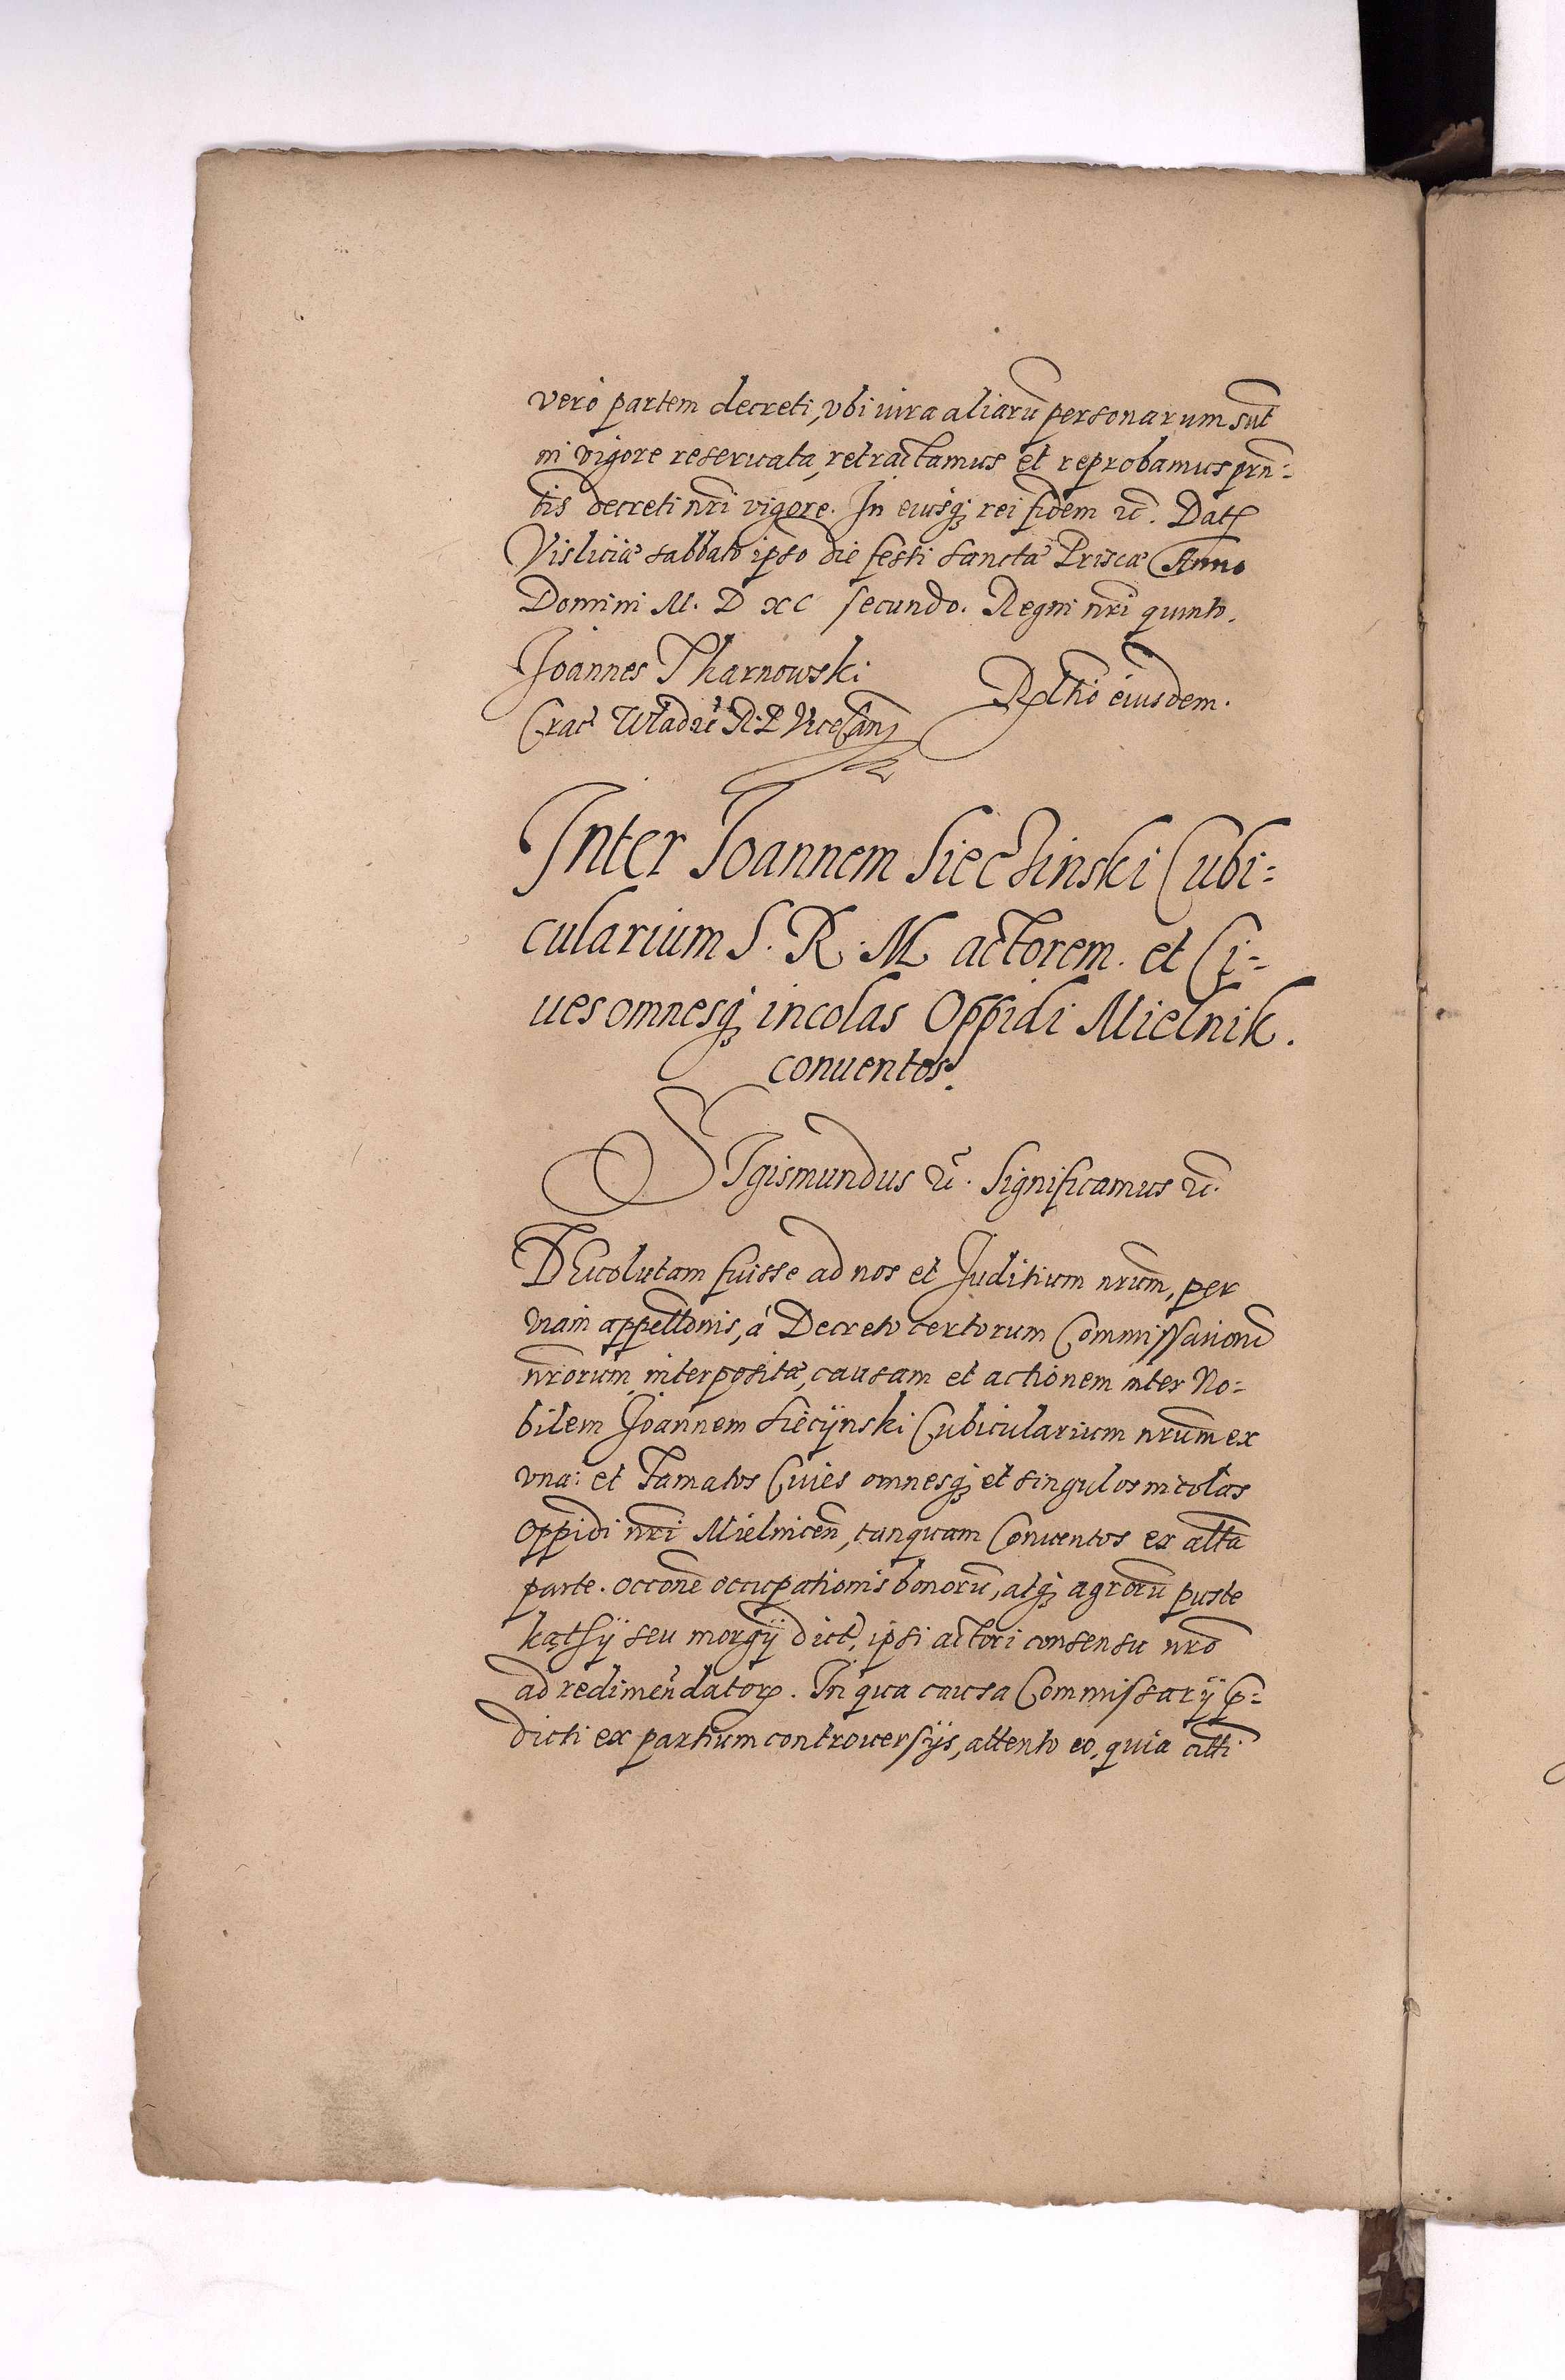 vero partem decreti, vbi iura aliarũ personarum sũt
in vigore reseruata, retractamus et reprobamus prñ=
tis decreti nr̃i vigore. In eiusq́ꝫ rei fidem ꝛc̃. Datꝭ
Visliciæ sabbato ipso die festi sanctæ Priscæ Anno
Domini M. D XC secundo. Regni nr̃i quinto.
Joannes Tharnowski
Crac̃ Wladzĩ R. P. Vicecanꝫ
Rlt̃io eiusdem.
Inter Joannem Sieczinski Cubi=
cularium S. R. M actorem. et Ci=
ues omnesq́ꝫ incolas Oppidi Mielnik.
conuentos.
SIgismundus ꝛc̃. Significamus ꝛc̃.
DEuolutam fuisse ad nos et Juditium nr̃um, per
viam appellõnis, á Decreto certorum Commissariorũ
nr̃orum interpositæ, causam et actionem inter No=
bilem Joannem Siecÿnski Cubicularium nr̃um ex
vna: et Famatos Ciues omnesq́ꝫ et singulos incolas
oppidi nr̃i Mielnicen̄, tanquam Conuentos ex alt̃a
parte. occon̄e occupationis bonorũ, atq́ꝫ agrorũ puste
kąthÿ seu morgÿ dict̃, ipsi actori consensu nr̃o
ad redimen̄ datorꝭ. In qua causa Commissarÿ p̃=
dicti ex partium controuersÿs, attento eo, quia citt̃i